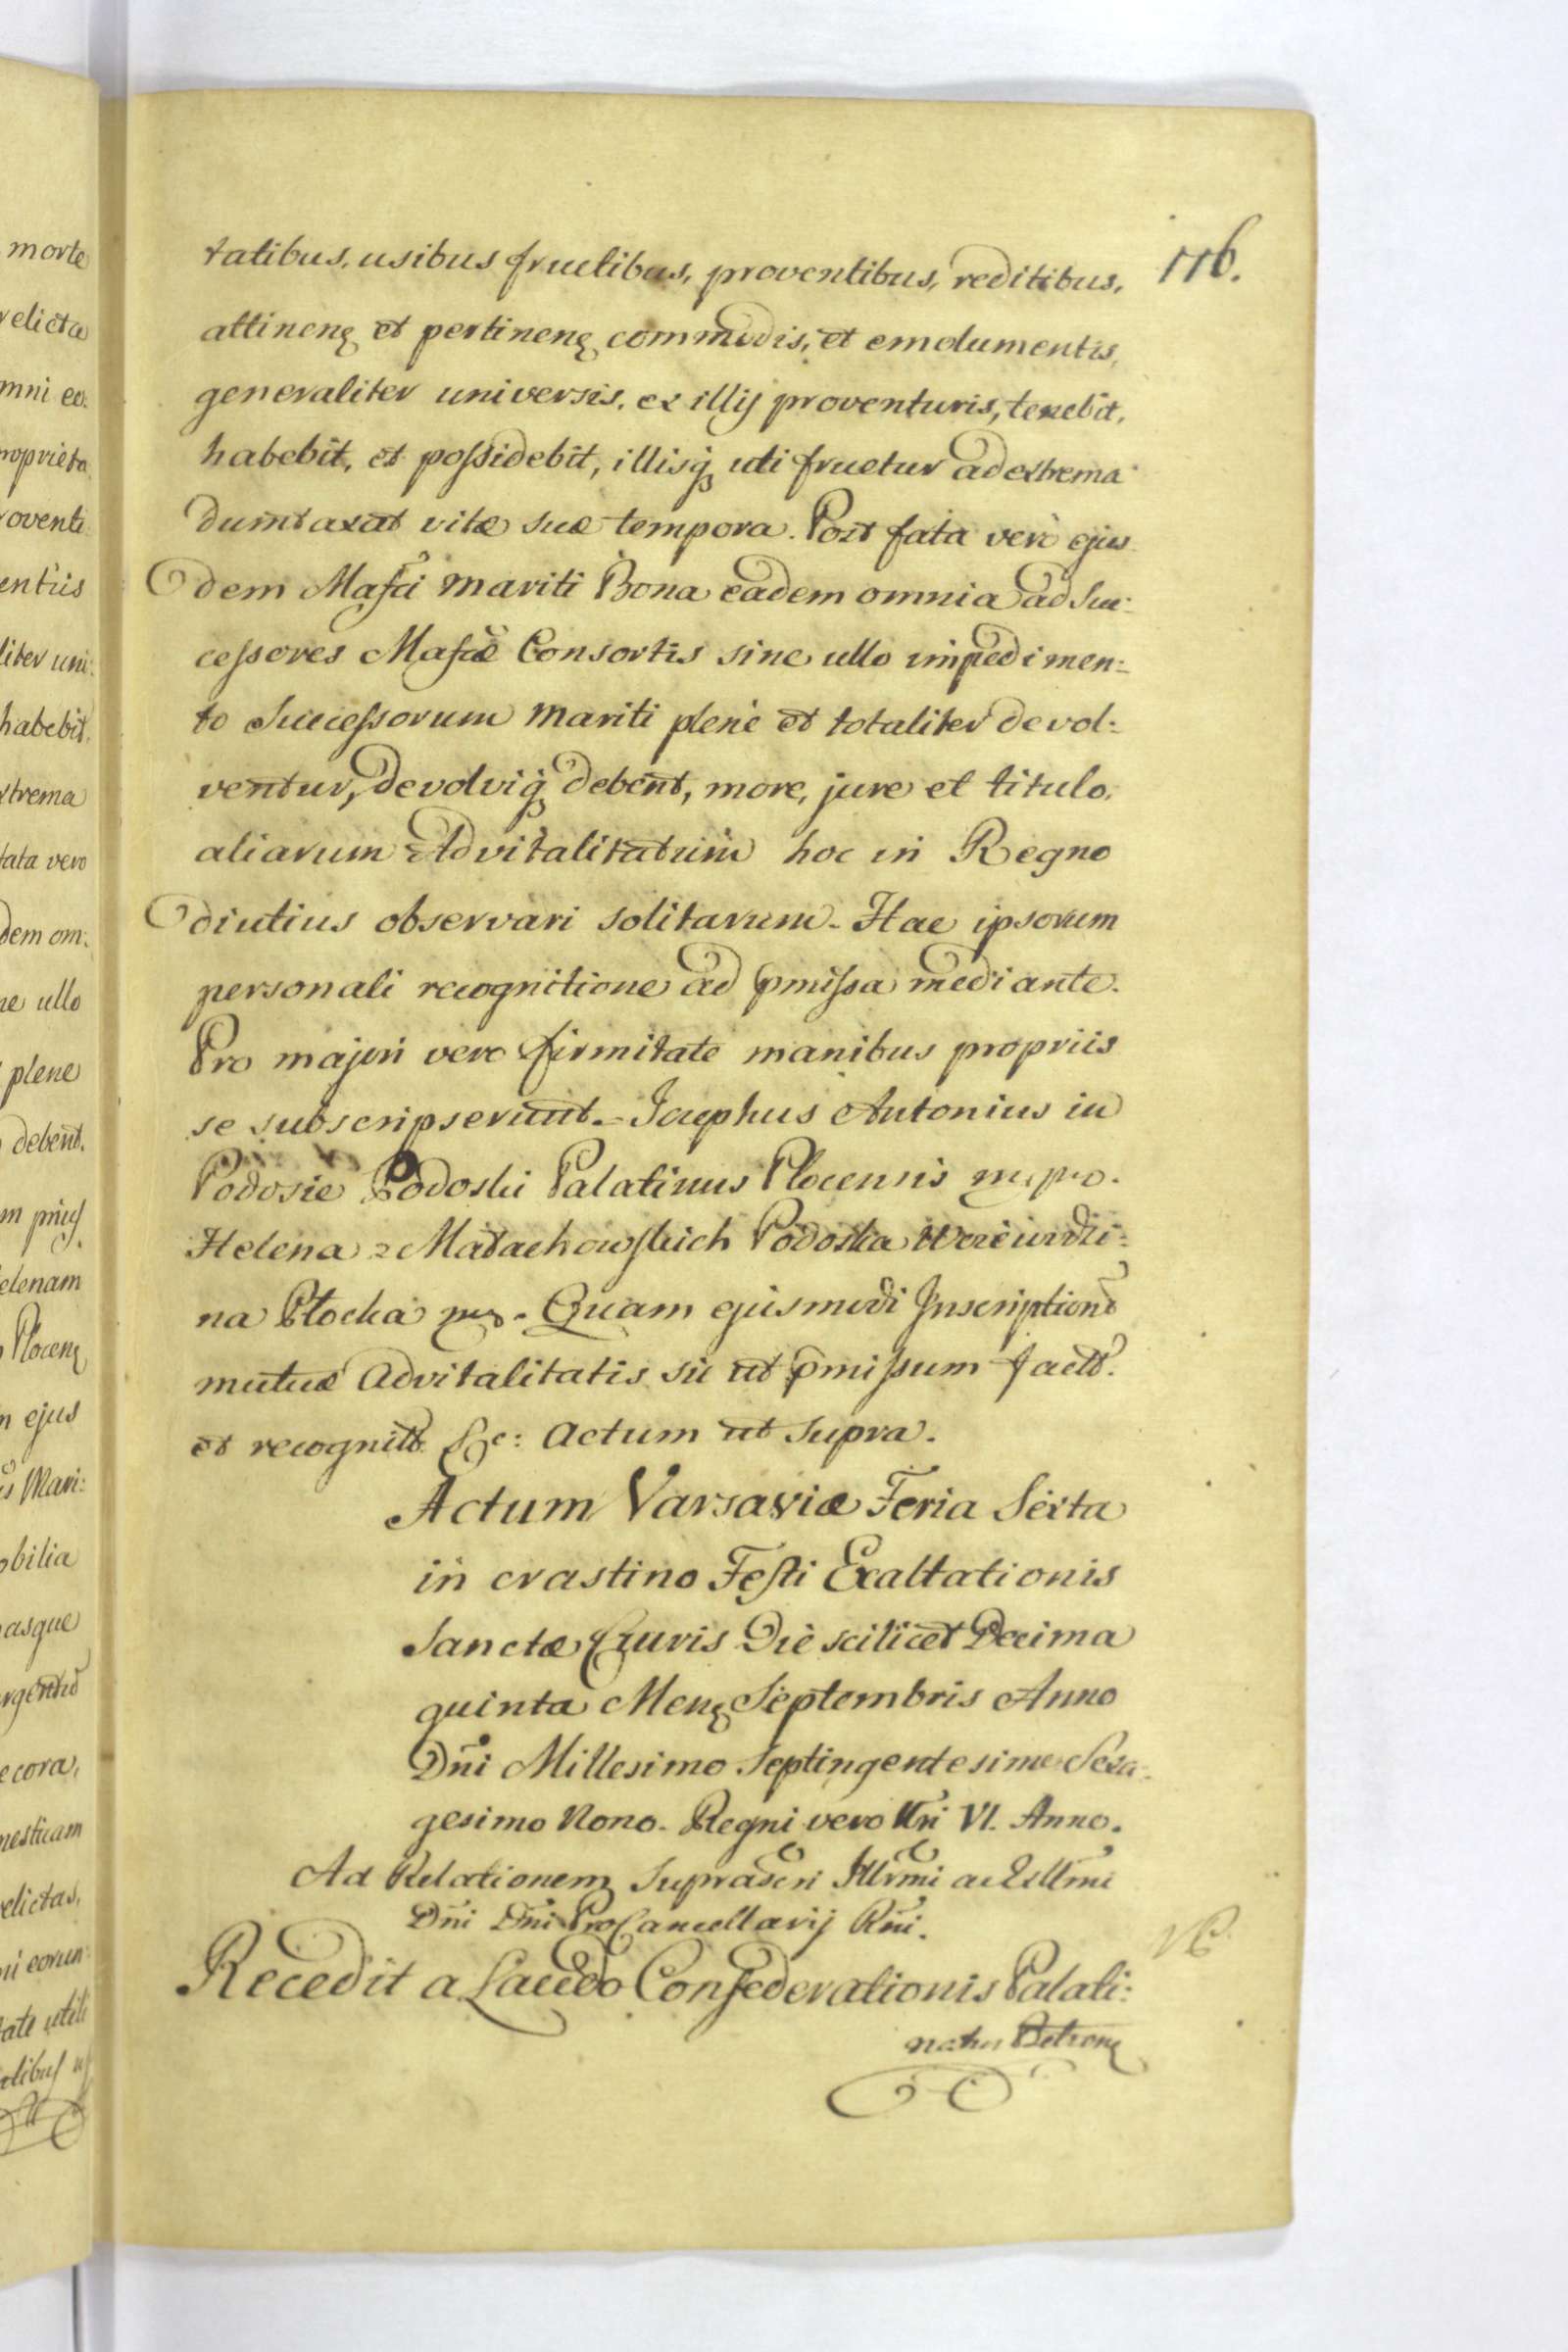 116.
tatibus, usibus fructibus, proventibus, reditibus,
attinenꝫ et pertinenꝫ commodis, et emolumentis,
generaliter universis, ex illis proventuris, tenebit,
habebit, et possidebit, illisqꝫ uti fruetur ad extrema
dumtaxat vitæ suæ tempora. Post fata verò ejus
dem Mafci mariti Bona eadem omnia ad Suc:
cessores Mafcæ Consortis sine ullo impedimen:
to Successorum mariti plenè et totaliter devol:
ventur, devolviqꝫ debent, more, jure et titulo,
aliarum Advitalitatum hoc in Regno
diutius observari solitarum. Hac ipsorum
personali recognitione ad pmissa mediante.
Pro majori vero firmitate manibus propriis
se subscripserunt. Josephus Antonius in
Podosie Podoski Palatinus Plocensis mpro.
Helena z Małachowskich Podoska Woiewodzi:
na Płocka mp. Quam ejusmodi Inscriptionē
mutuæ Advitalitatis sic ut pmissum fact.
et recognit. &c: Actum ut supra.
Actum Varsaviæ Feria Sexta
in crastino Festi Exaltationis
Sanctæ Crucis Die scilicet Decima
quinta Menꝫ Septembris Anno
Dn̄i Millesimo Septingentesimo Sexa:
gesimo Nono. Regni vero Nri VI. Anno.
Ad Relationem Suprascri Illrmi ac Exllmi
Dn̄i Dn̄i ProCancellarij Rn̄i.
Recedit a Laudo Confederationis Palati:
natus